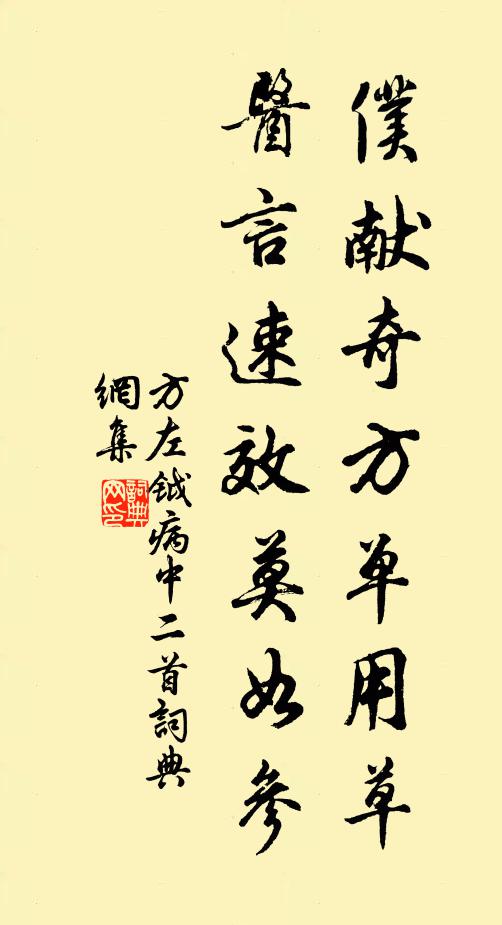 僕献奇方单用草
醫言速效莫如參
方左鉞病中二首詞典
網集
詞典
网印